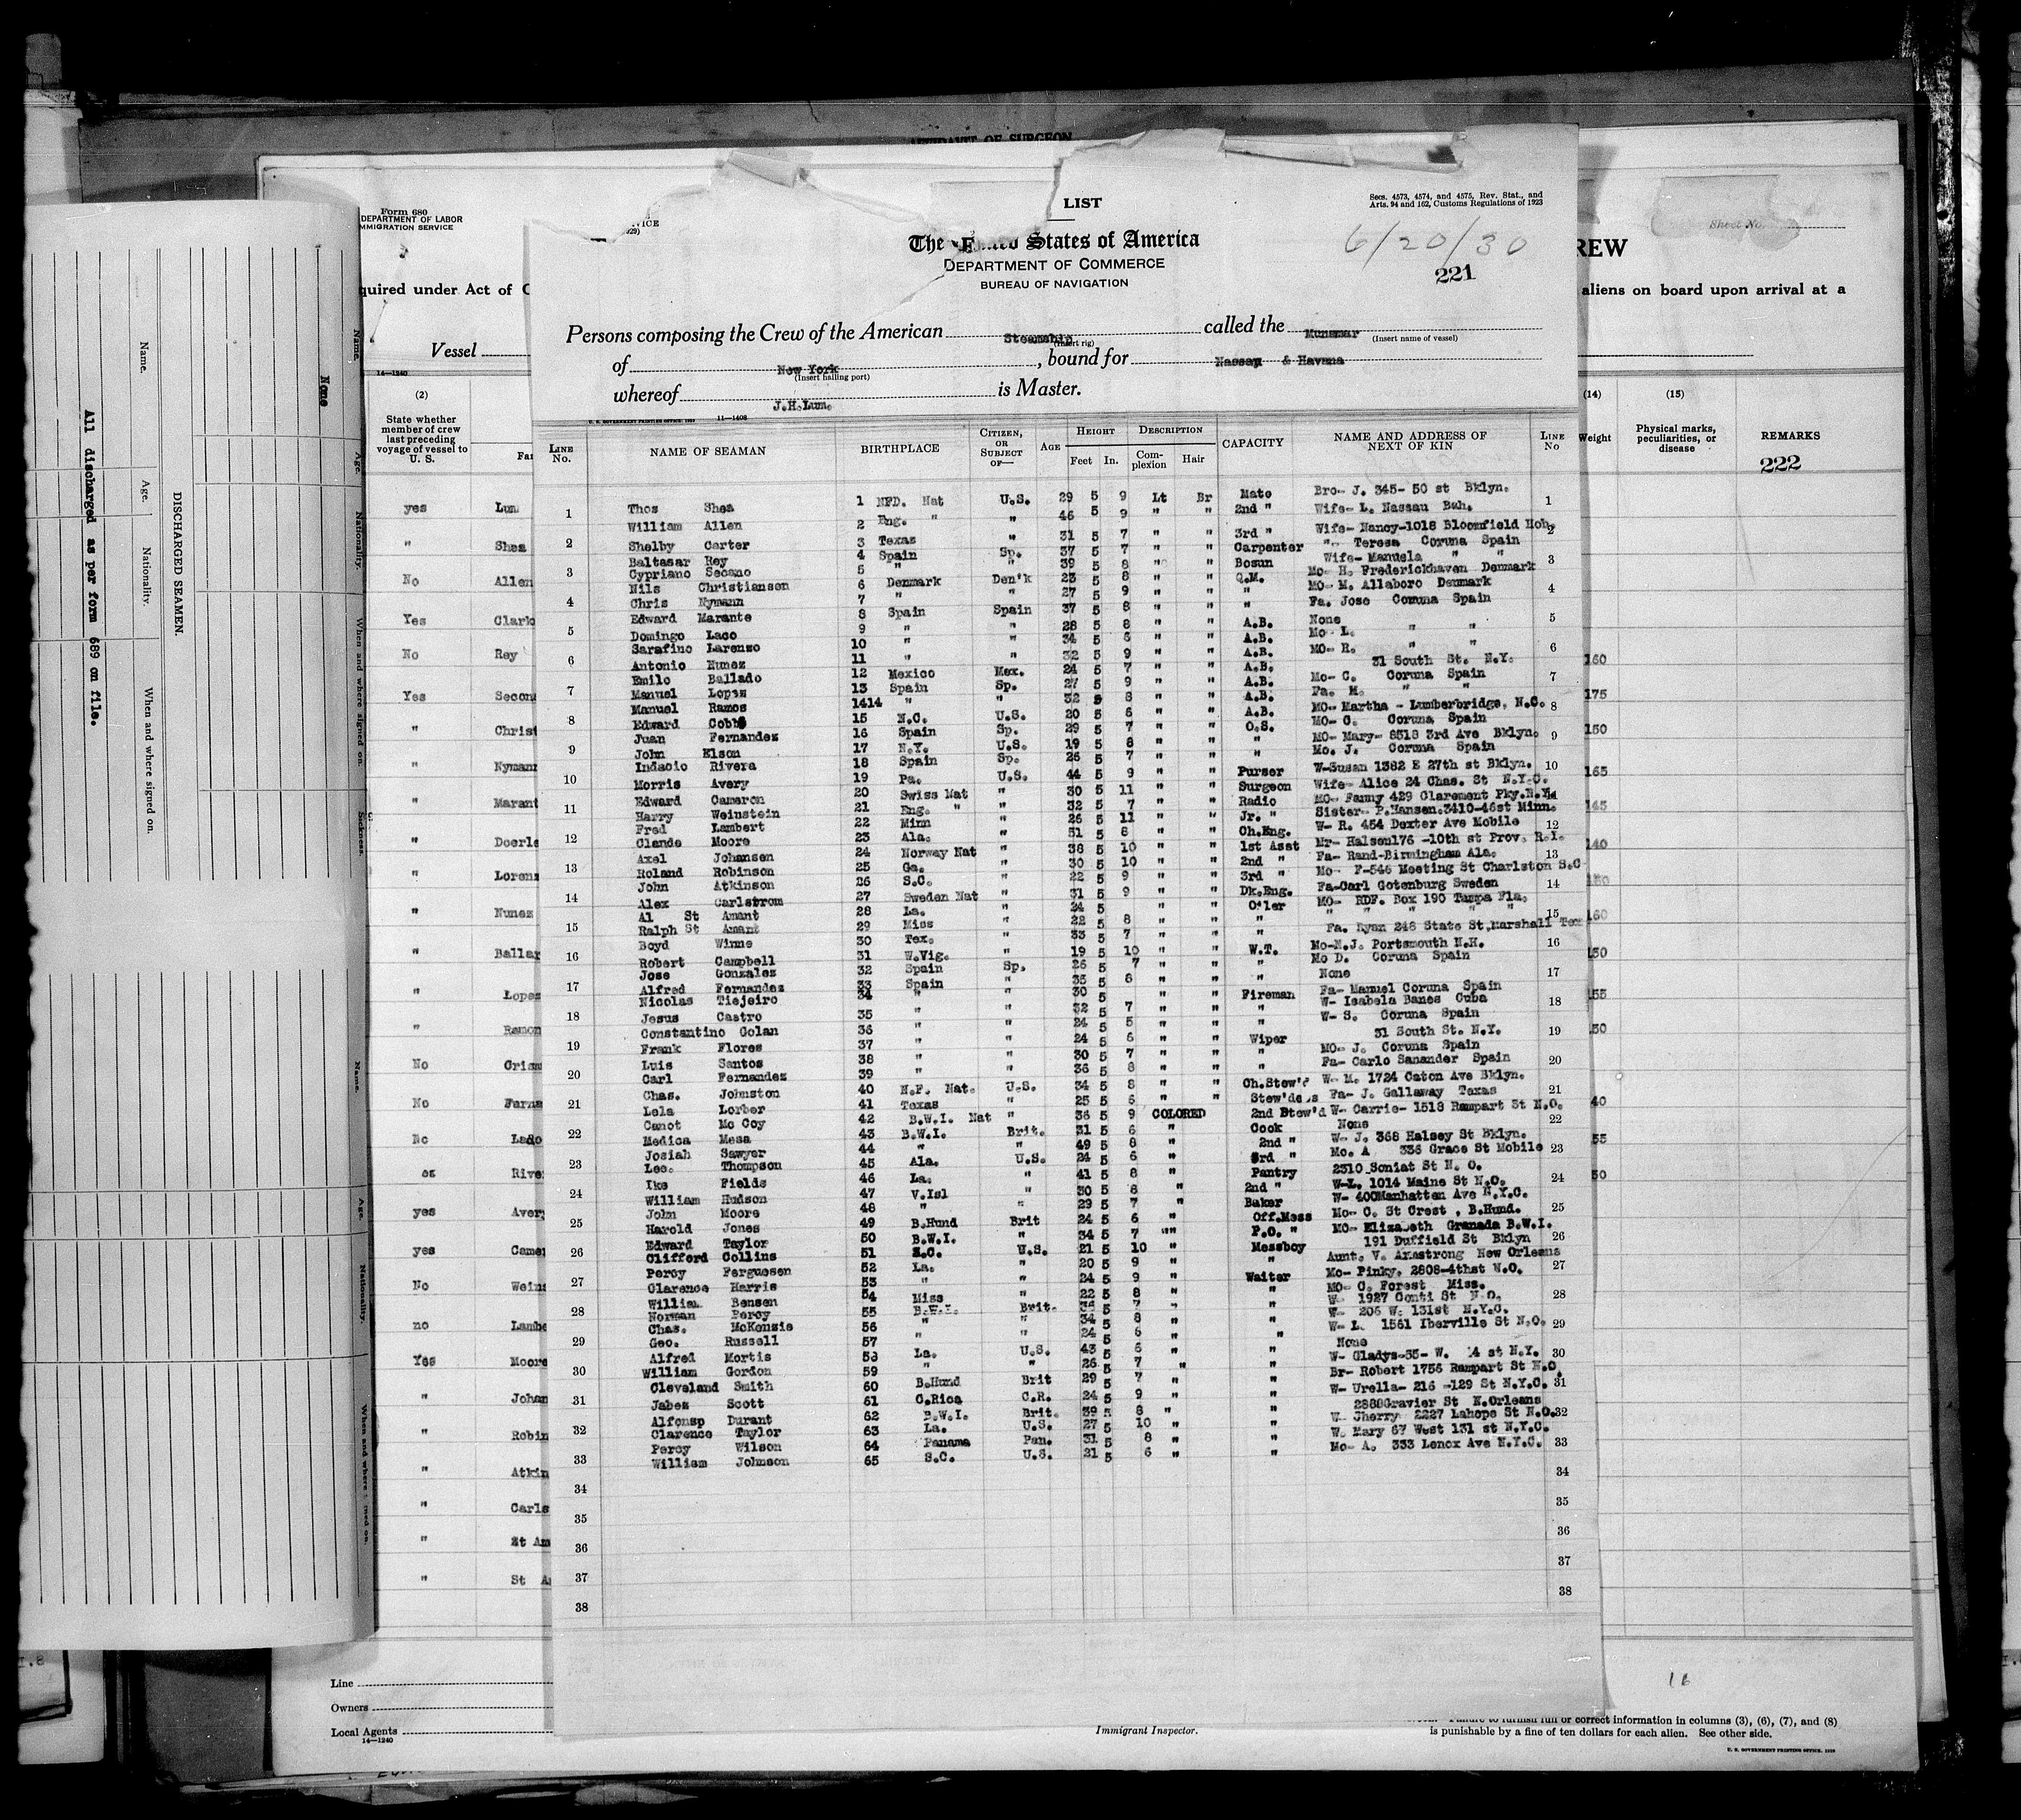 AFFIDAVIT OF SURGEON
Form 680
DEPARTMENT OF LABOR
IMMIGRATION SERVICE
quired under Act of C
Vessel
14—1240
(2)
State whether member of crew last preceding voyage of vessel to U. S.
yes Lum
" Shea
No Allen
Yes Clark
No Rey
Yes Secon
" Christ
" Nymann
" Marant
" Doerle
" Lorenz
" Nunez
" Ballar
" Lopez
" Ramon
No Crism
No Ferna
No Lado
es River
yes Avery
yes Camer
No Weins
no Lambe
Yes Moore
" Johan
" Robin
" Atkin
" Carls
" St Am
" St A
Line
Owners
Local Agents
14—1240
None
All discharged as per form 689 on file.
DISCHARGED SEAMEN.
Name.
Age.
Nationality.
When and where signed on.
LIST
Secs. 4573, 4574, and 4575, Rev. Stat., and
Arts. 94 and 162, Customs Regulations of 1923
The United States of America
6/20/30
DEPARTMENT OF COMMERCE
221
BUREAU OF NAVIGATION
Persons composing the Crew of the American Steamship called the Munamar
(Insert rig) (Insert name of vessel)
of New York, bound for Nassau & Havana
(Insert hailing port)
whereof J.H.Lum. is Master.
U. S. GOVERNMENT PRINTING OFFICE: 11—1408
LINE No. NAME OF SEAMAN BIRTHPLACE CITIZEN, OR SUBJECT OF— AGE HEIGHT Feet In. DESCRIPTION Complexion Hair CAPACITY NAME AND ADDRESS OF NEXT OF KIN LINE No
Thos Shea 1 NFD. Nat U.S. 29 5 9 Lt Br Mate Bro- J. 345- 50 st Bklyn.
William Allen 2 Eng. " " 46 5 9 " " 2nd " Wife- L. Nassau Bah.
Shelby Carter 3 Texas " 31 5 7 " " 3rd " Wife- Nancy-1018 Bloomfield Hob.
Baltasar Rey 4 Spain Sp. 37 5 7 " " Carpenter "- Teresa Coruna Spain
Cypriano Secano 5 " " 39 5 8 " " Bosun Wife- Manuela " "
Nils Christiansen 6 Denmark Den'k 23 5 8 " " Q.M. Mo- H. Frederickhaven Denmark
Chris Nymann 7 " " 27 5 9 " " " MO- M. Allaboro Denmark
Edward Marante 8 Spain Spain 37 5 8 " " " Fa. Jose Coruna Spain
Domingo Laco 9 " " 28 5 8 " " A.B. None
Sarafino Larenzo 10 " " 34 5 6 " " A.B. Mo- L. " "
Antonio Nunez 11 " " 32 5 9 " " A.B. MO- R. " "
Emilo Ballado 12 Mexico Mex. 24 5 7 " " A.B. 31 South St. N.Y.
Manuel Lopez 13 Spain Sp. 27 5 9 " " A.B. Mo- C. Coruna Spain
Manuel Ramos 1414 " " 32 5 8 " " A.B. Fa. M. " "
Edward Cobbs 15 N.C. U.S. 20 5 6 " " A.B. MO- Martha - Lumberbridge, N.C.
Juan Fernandez 16 Spain Sp. 29 5 7 " " O.S. MO- C. Coruna Spain
John Elsom 17 N.Y. U.S. 19 5 8 " " " MO- Mary- 8518 3rd Ave Bklyn.
Indacio Rivera 18 Spain Sp. 26 5 7 " " " Mo. J. Coruna Spain
Morris Avery 19 Pa. U.S. 44 5 9 " " Purser W-Susan 1382 E 27th st Bklyn.
Edward Cameron 20 Swiss Nat " 30 5 11 " " Surgeon Wife- Alice 24 Chas. St N.Y.C.
Harry Weinstein 21 Eng. " " 32 5 7 " " Radio MO- Fanny 429 Claremont Pky.N.Y.
Fred Lambert 22 Minn " 26 5 11 " " Jr. " Sister- P.Hansen.3410-46st Minn.
Claude Moore 23 Ala. " 51 5 8 " " Ch.Eng. W- R. 454 Dexter Ave Mobile
Axel Johansen 24 Norway Nat " 38 5 10 " " 1st Asst Mr- Halsen176 -10th st Prov. R.I.
Roland Robinson 25 Ga. " 30 5 10 " " 2nd " Fa- Rand-Birmingham Ala.
John Atkinson 26 S.C. " 22 5 9 " " 3rd " Mo- F-546 Meeting St Charlston S.C
Alex Carlstrom 27 Sweden Nat " 31 5 9 " " Dk.Eng. Fa-Carl Gotenburg Sweden
Al St Amant 28 La. " 24 5 " " Oiler MO- RDF. Box 190 Tampa Fla.
Ralph St Amant 29 Miss " 22 5 8 " " " " " " " "
Boyd Winne 30 Tex. " 33 5 7 " " " Fa. Ryan 248 State St,Marshall Tex
Robert Campbell 31 W.Vig. " 19 5 10 " " W.T. Mo-M.J. Portsmouth N.H.
Jose Gonzalez 32 Spain Sp. 26 5 7 " " " Mo D. Coruna Spain
Alfred Fernandez 33 Spain " 35 5 8 " " " None
Nicolas Tiejeiro 34 " " 30 5 " " Fireman Fa- Manuel Coruna Spain
Jesus Castro 35 " " 32 5 7 " " " W- Isabela Banes Cuba
Constantino Golan 36 " " 24 5 5 " " " W- S. Coruna Spain
Frank Flores 37 " " 24 5 6 " " Wiper 31 South St. N.Y.
Luis Santos 38 " " 30 5 7 " " " MO- J. Coruna Spain
Carl Fernandez 39 " " 36 5 8 " " " Fa- Carlo Sanander Spain
Chas. Johnston 40 N.F. Nat. U.S. 34 5 8 " " Ch.Stew'd W- M. 1724 Caton Ave Bklyn.
Lela Lorber 41 Texas " 25 5 6 " " Stew'dess Fa- J. Gallaway Texas
Canot Mc Coy 42 B.W.I. Nat " 36 5 9 COLORED 2nd Stew'd W- Carrie- 1518 Rampart St N.O.
Medica Mesa 43 B.W.I. Brit. 31 5 6 " Cook None
Josiah Sawyer 44 " " 49 5 8 " 2nd " W- J. 368 Halsey St Bklyn.
Leo. Thompson 45 Ala. U.S. 24 5 6 " 3rd " Mo. A 336 Grace St Mobile
Ike Fields 46 La. " 41 5 8 " Pantry 2310 Soniat St N. O.
William Hudson 47 V.Isl " 30 5 8 " 2nd " W-L. 1014 Maine St N.O.
John Moore 48 " " 29 5 7 " Baker W- 400Manhatten Ave N.Y.C.
Harold Jones 49 B.Hund Brit 24 5 6 " Off.Mess Mo- C. St Crest , B.Hund.
Edward Taylor 50 B.W.I. " 34 5 7 "" P.O. " MO- Elizabeth Granada B.W.I.
Clifford Collins 51 S.C. U.S. 21 5 10 " Messboy 191 Duffield St Bklyn
Percy Ferguesen 52 La. " 20 5 9 " " Aunt. V. Armstrong New Orleans
Clarence Harris 53 " " 24 5 9 " Waiter Mo- Pinky. 2808-4thst N.O.
William Bensen 54 Miss " 22 5 8 " " MO- C. Forest Miss.
Norman Percy 55 B.W.I. Brit. 5 7 " " W- 1927 Conti St N.O.
Chas. McKenzie 56 " " 34 5 8 " " W- 206 W. 131st N.Y.C.
Geo. Russell 57 " " 24 5 6 " " W- L. 1561 Iberville St N.O.
Alfred Mortis 58 La. U.S. 43 5 6 " " None
William Gordon 59 " " 26 5 7 " " W- Gladys-35- W. 4 st N.Y.
Cleveland Smith 60 B.Hund Brit 29 5 7 " " Br- Robert 1756 Rampart St N.O.
Jabez Scott 61 C.Rica C.R. 24 5 9 " " W- Urella- 216 -129 St N.Y.C.
Alfonsp Durant 62 B.W.I. Brit. 39 5 8 " " 2888Gravier St N.Orleans
Clarence Taylor 63 La. U.S. 27 5 10 " " W- Cherry 2227 Lahope St N.O.
Percy Wilson 64 Panama Pan. 31 5 8 " " W. Mary 67 West 131 st N.Y.C.
William Johnson 65 S.C. U.S. 21 5 6 " " Mo- A. 333 Lenox Ave N.Y.C.
34
35
36
37
38
Immigrant Inspector.
Sheet No.
REW
aliens on board upon arrival at a
(14) (15)
Weight
Physical marks, peculiarities, or disease
REMARKS
222
160
175
150
165
145
140
160
150
155
50
40
55
50
16
or correct information in columns (3), (6), (7), and (8)
is punishable by a fine of ten dollars for each alien. See other side.
U. S. GOVERNMENT PRINTING OFFICE